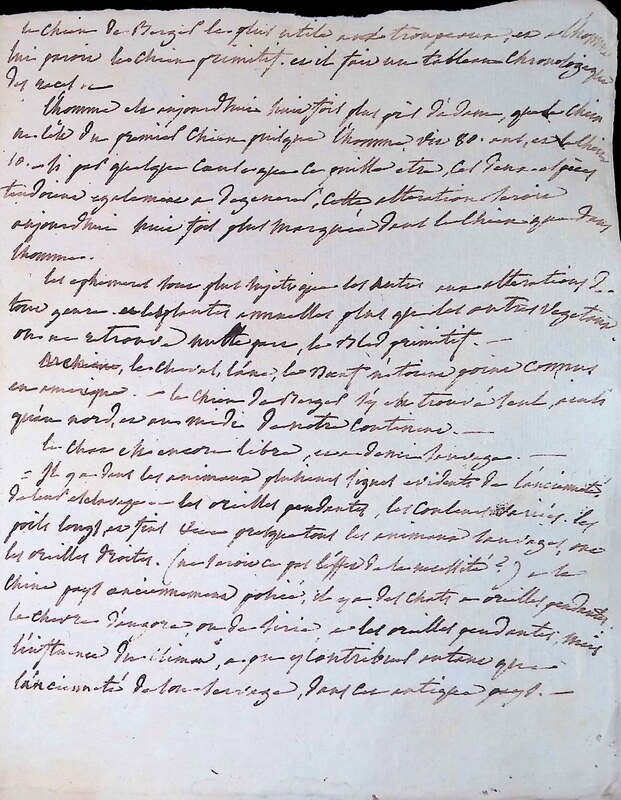 le chien de Berger le plus utile aux troupeaux, et a l'homme
lui paroit le chien primitif. et il fait un tableau chronologique
des races.
l'homme est aujourdhuie huit fois plus pres d'adam, que le chien
ne l'est du premier chien puisque l'homme vit 80. ans, et le chien
10. si par quelque cause que ce puisse etre, ces deux especes
tendoient egalement a degenerer, cette alteration seroit
aujourdhuie huit fois plus marquée dans le chien que dans
l'homme.
les ephemeres sont plus sujets que les autres aux alterations de
tout genre. et les plantes annuelles plus que les autres vegetaux.
on ne retrouve nulle part, le Bled primitif. —
le cheval, l'ane, le Bœuf n'etoient point connus
en amerique. — le chien de Berger s'y est trouvé seul,
qu'au nord, et au midi de notre continent. —
le chat est encore libre, et a demi sauvage. —
= Il y a dans les animaux plusieurs signes evidents de l'ancienneté
de leur esclavage — les oreilles pendantes, les couleurs variées. les
poils longs, et fins presque tous les animaux sauvages, ont
les oreilles droites. (ne seroit ce pas l'effet de la necessité?) a la
chine pays anciennement policé, il y a des chats a oreilles pendantes.
la chevre d'angora, ou de sirie, a les oreilles pendantes, mais
l'influence du climat, a pu y contribuer autant que
l'ancienneté de son servage, dans cet antique pays. —